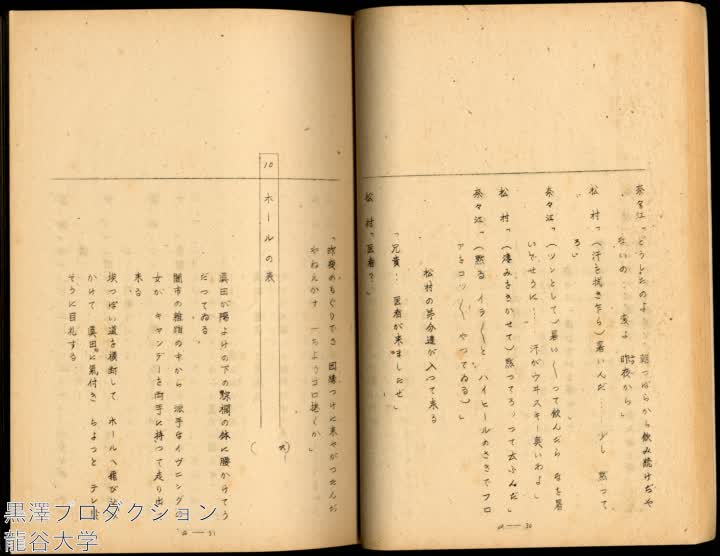 奈々江「どうしたのよ 朝つぱらから飲み続けぢや
ないの… 変よ 昨夜から」
松 村「(汗を拭き乍ら)暑いんだ… 少し 黙つて
ろ」
奈々江「(ツンとして)暑い〳〵って飲んだら 尚暑
いでせうに… 汗がウヰスキー臭いわよ」
松 村「(凄みをきかせて)黙つてろつて云ふんだ」
奈々江「(黙る イラ〳〵と ハイヒールのさきでフロ
アをコツ〳〵 やつてゐる)」
松村の弟分達が入つて来る
「兄貴… 医者が来ましたぜ」
松 村「医者?」
a—30
「昨夜のもぐりでさ 因縁つけに来やがつたんだ
やねえかす 一ちようゴロ捲くか」
10 ホールの表
眞田が陽よけの下の棕櫚の鉢に腰かけてう
だつてゐる
闇市の雑踏の中から 派手なイヴニングの
女が キャンデーを両手に持つて走り出て
来る
埃つぽい道を横断して ホールへ飛び込み
かけて 眞田に氣付き ちよつと テレ臭
そうに目礼する
a—31
黒澤プロダクション
龍谷大学